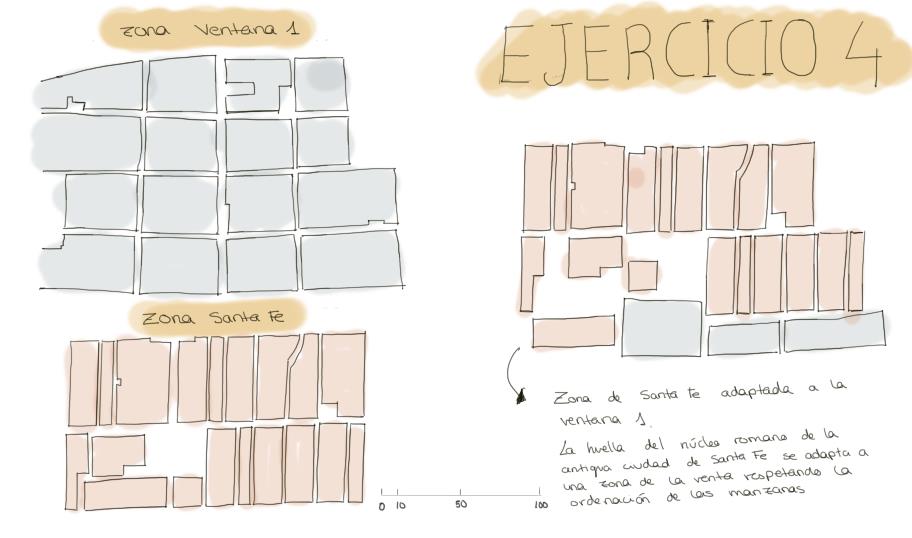 zona Ventana 1
EJERCICIO 4
zona Santa Fe
0 10 50 100
Zona de Santa Fe adaptada a la
ventana 1.
La huella del núcleo romano de la
antigua ciudad de Santa Fe se adapta a
una zona de la venta respetando la
ordenación de las manzanas